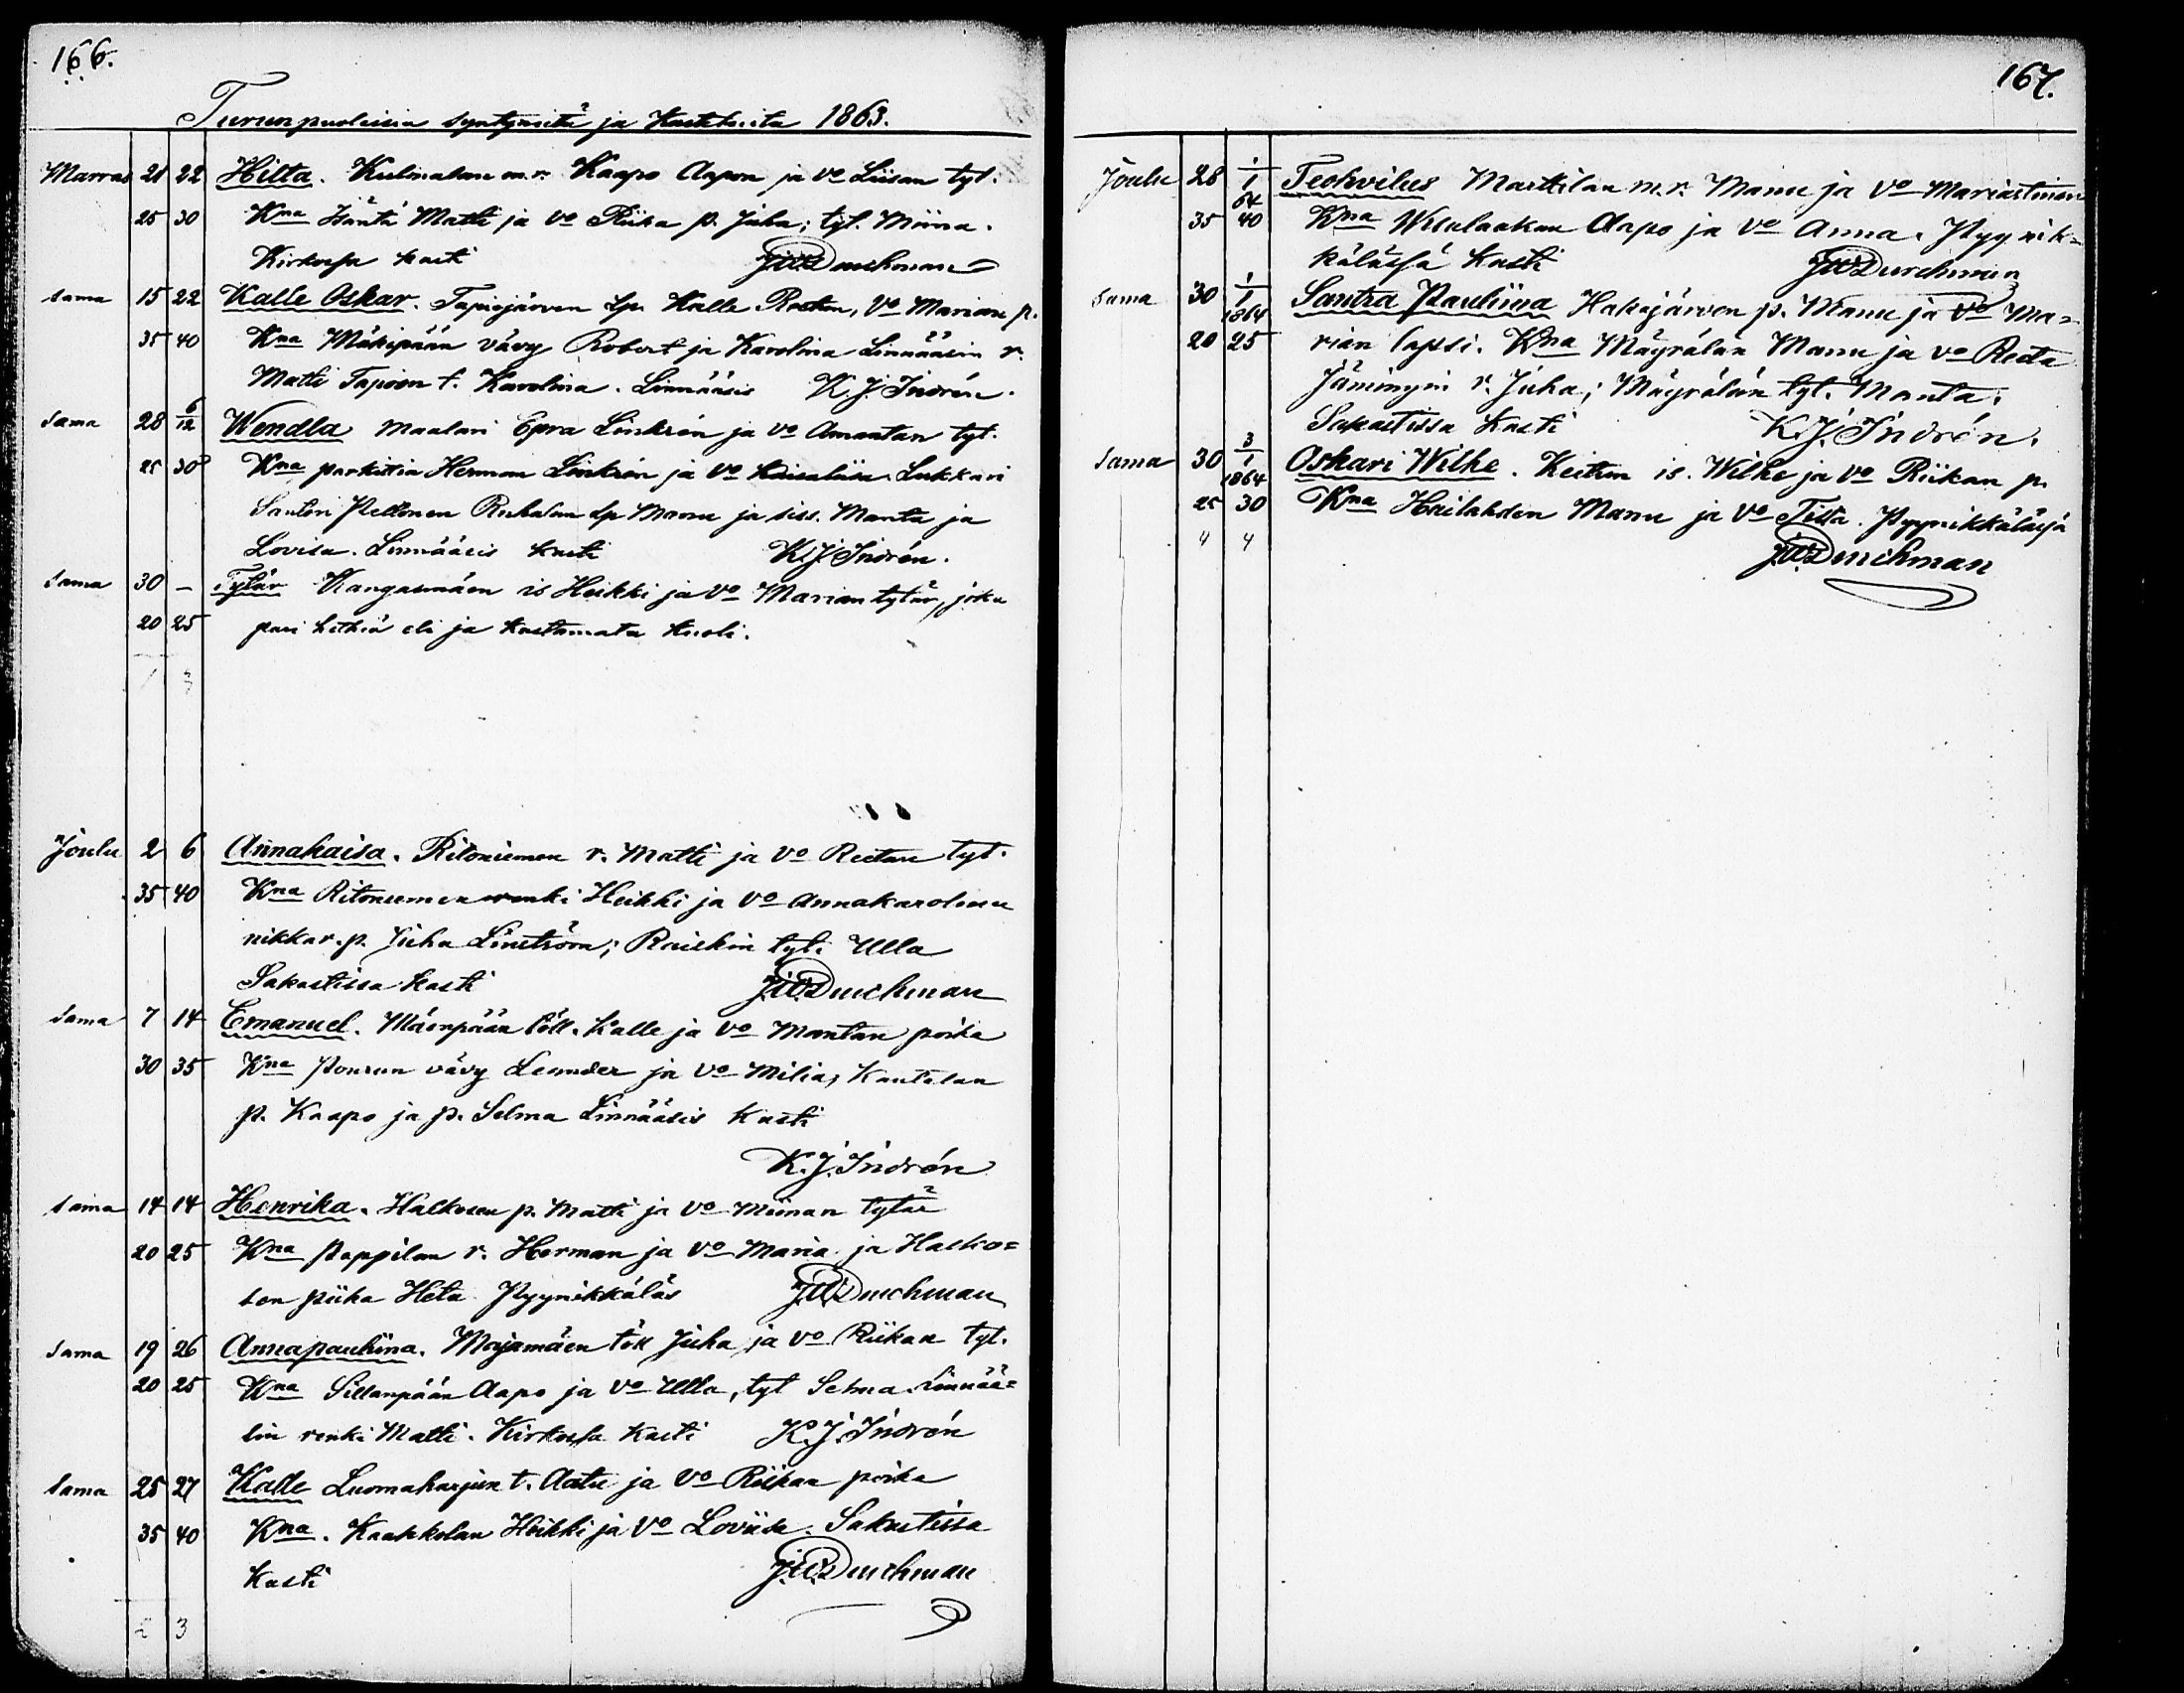 166.
Turunpuoleisia syntyneitä ja Kastetuita 1863.
Marras 21 22 Hilta. Kulmalan m.r. Kaapo Aapon ja vo Liisan tyt.
25 30 Kna Häntä Matti ja vo Riika p. Juha; tyt. Miina.
Kirkossa kasti JWDurchman
Sama 15 22 Kalle Oskar. Tapiojärven Lp. Kalle, vo Marian p.
35 40 Kna Mäkipään vävy Robert ja Karolina Linnääsin r.
Matti Tapion t. Karolina. Linnääsis K.J. Indrén.
Sama 28 6/12 Wendla Maalari Epra Linkrén ja vo Amantan tyt.
25 30 Kna Herman Linkrén ja vo Lukkari
Santeri Peltonen Lp Manu ja siss. Manta ja
Lovisa. Linnääsis kasti K.J. Indrén.
Sama 30 — Tytär Kangasmäen is Heikki ja vo Marian tytär, joka
20 25 pari hetkiä eli ja kastamata kuoli.
1 3
Joulu 2 6 Annakaisa. Ritoniemen r. Matti ja vo Reetan tyt.
35 40 Kna Ritoniemen renki Heikki ja vo Annakarolina
nikkar. p. Juha Linström; tyt. Ulla
Sakastissa kasti JWDurchman
Sama 7 14 Emanuel. Mäenpään töll. Kalle ja vo Mantan poika
30 35 Kna Pourun vävy Leander ja vo Milia, Kantolan
p. Kaapo ja p. Selma Linnääsis kasti
K.J. Indrén
Sama 14 14 Henrika. Halkosen p. Matti ja vo Miinan tytär
20 25 Kna Pappilan r. Herman ja vo Maria ja Halko=
sen piika Heta Pyynikkäläs JWDurchman
Sama 19 26 Annapauliina. Majamäen töll Juha ja vo Riikan tyt.
20 25 Kna Sillanpään Aapo ja vo Ulla, tyt Selma. Linnää=
sin renki Matti. Kirkossa kasti K.J. Indrén
Sama 25 27 Kalle Luomaharjun t. Aatu ja vo Riikan poika
35 40 Kna. Kaakkolan Heikki ja vo Loviisa. Sakastissa
kasti JWDurchman
2 3
167.
Joulu 28 1/1 64 Teohvilus Marttilan m.r. Manu ja vo Mariastiinan
35 40 Kna Aapo ja vo Anna. Pyynik=
kälässä kasti JWDurchman
Sama 30 1/1 1864 Santra Pauliina Hakojärven p. Manu ja vo Ma=
20 25 rian lapsi. Kna Mäyrälän Manu ja vo Reeta
Jämingin r. Juha; Mäyrälän tyt. Manta.
Sakastissa kasti K.J. Indrén.
Sama 30 3/1 1864 Oskari Wilhe. Keiturin is. Wilhe ja vo Riikan p.
25 30 Kna Hailahden Manu ja vo Tilta. Pyynikkälässä
4 4 JWDurchman